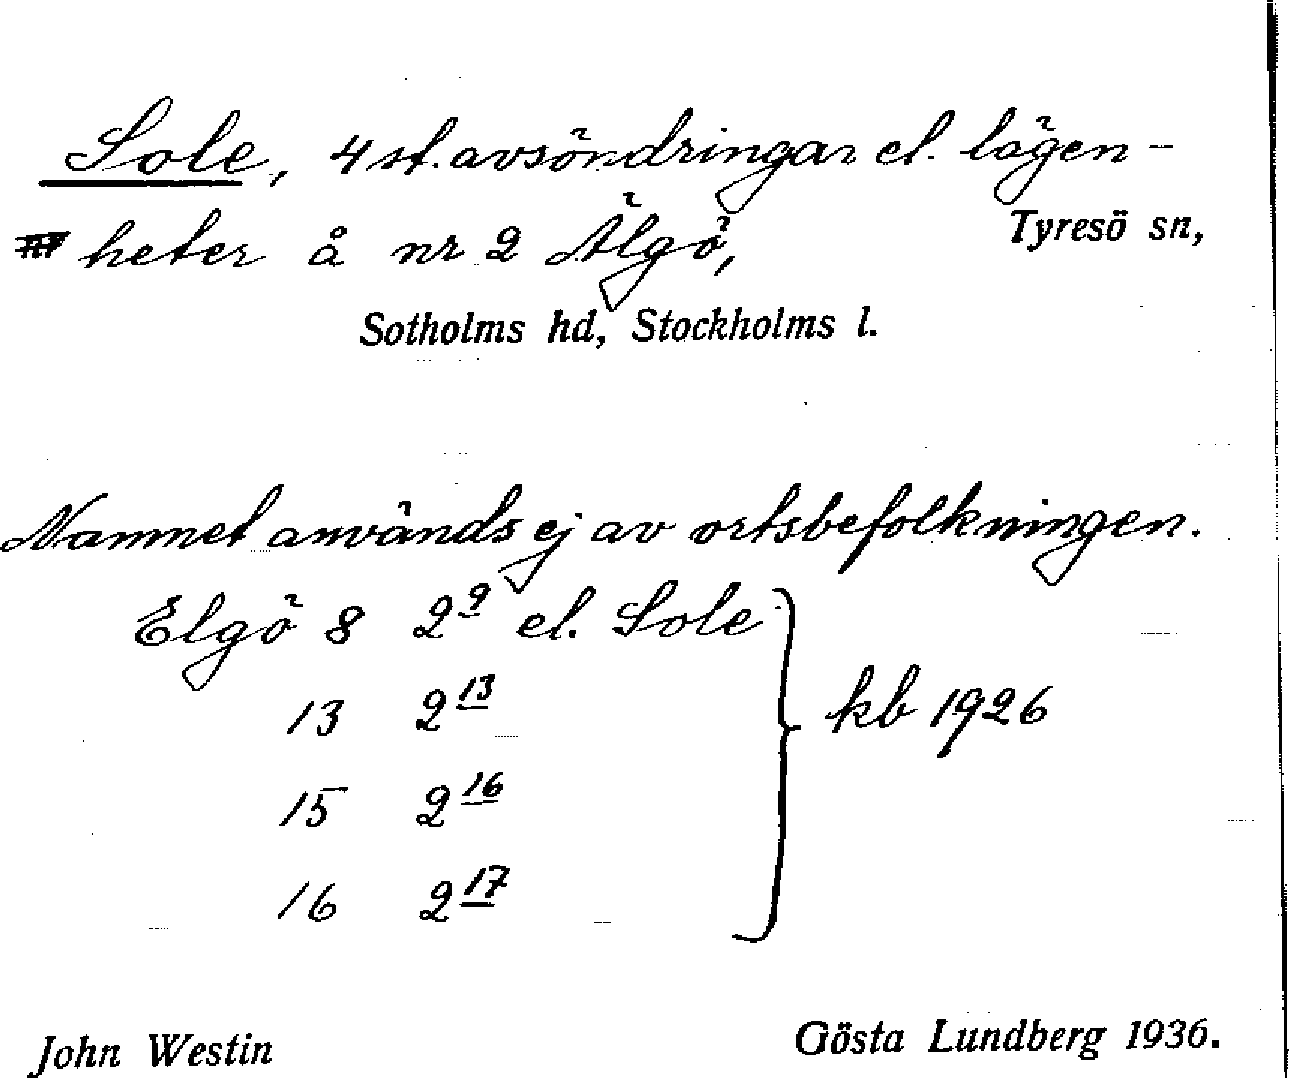 Sole, 4 st. avsöndringar el. lägen-
heter å nr 2 Älgö,
Tyresö sn,
Sotholms hd, Stockholms l.
Namnet används ej av ortsbefolkningen.
Elgö 8 2⁹ el. Sole
13 2¹³
15 2¹⁶
16 2¹⁷
kb 1926
John Westin
Gösta Lundberg 1936.